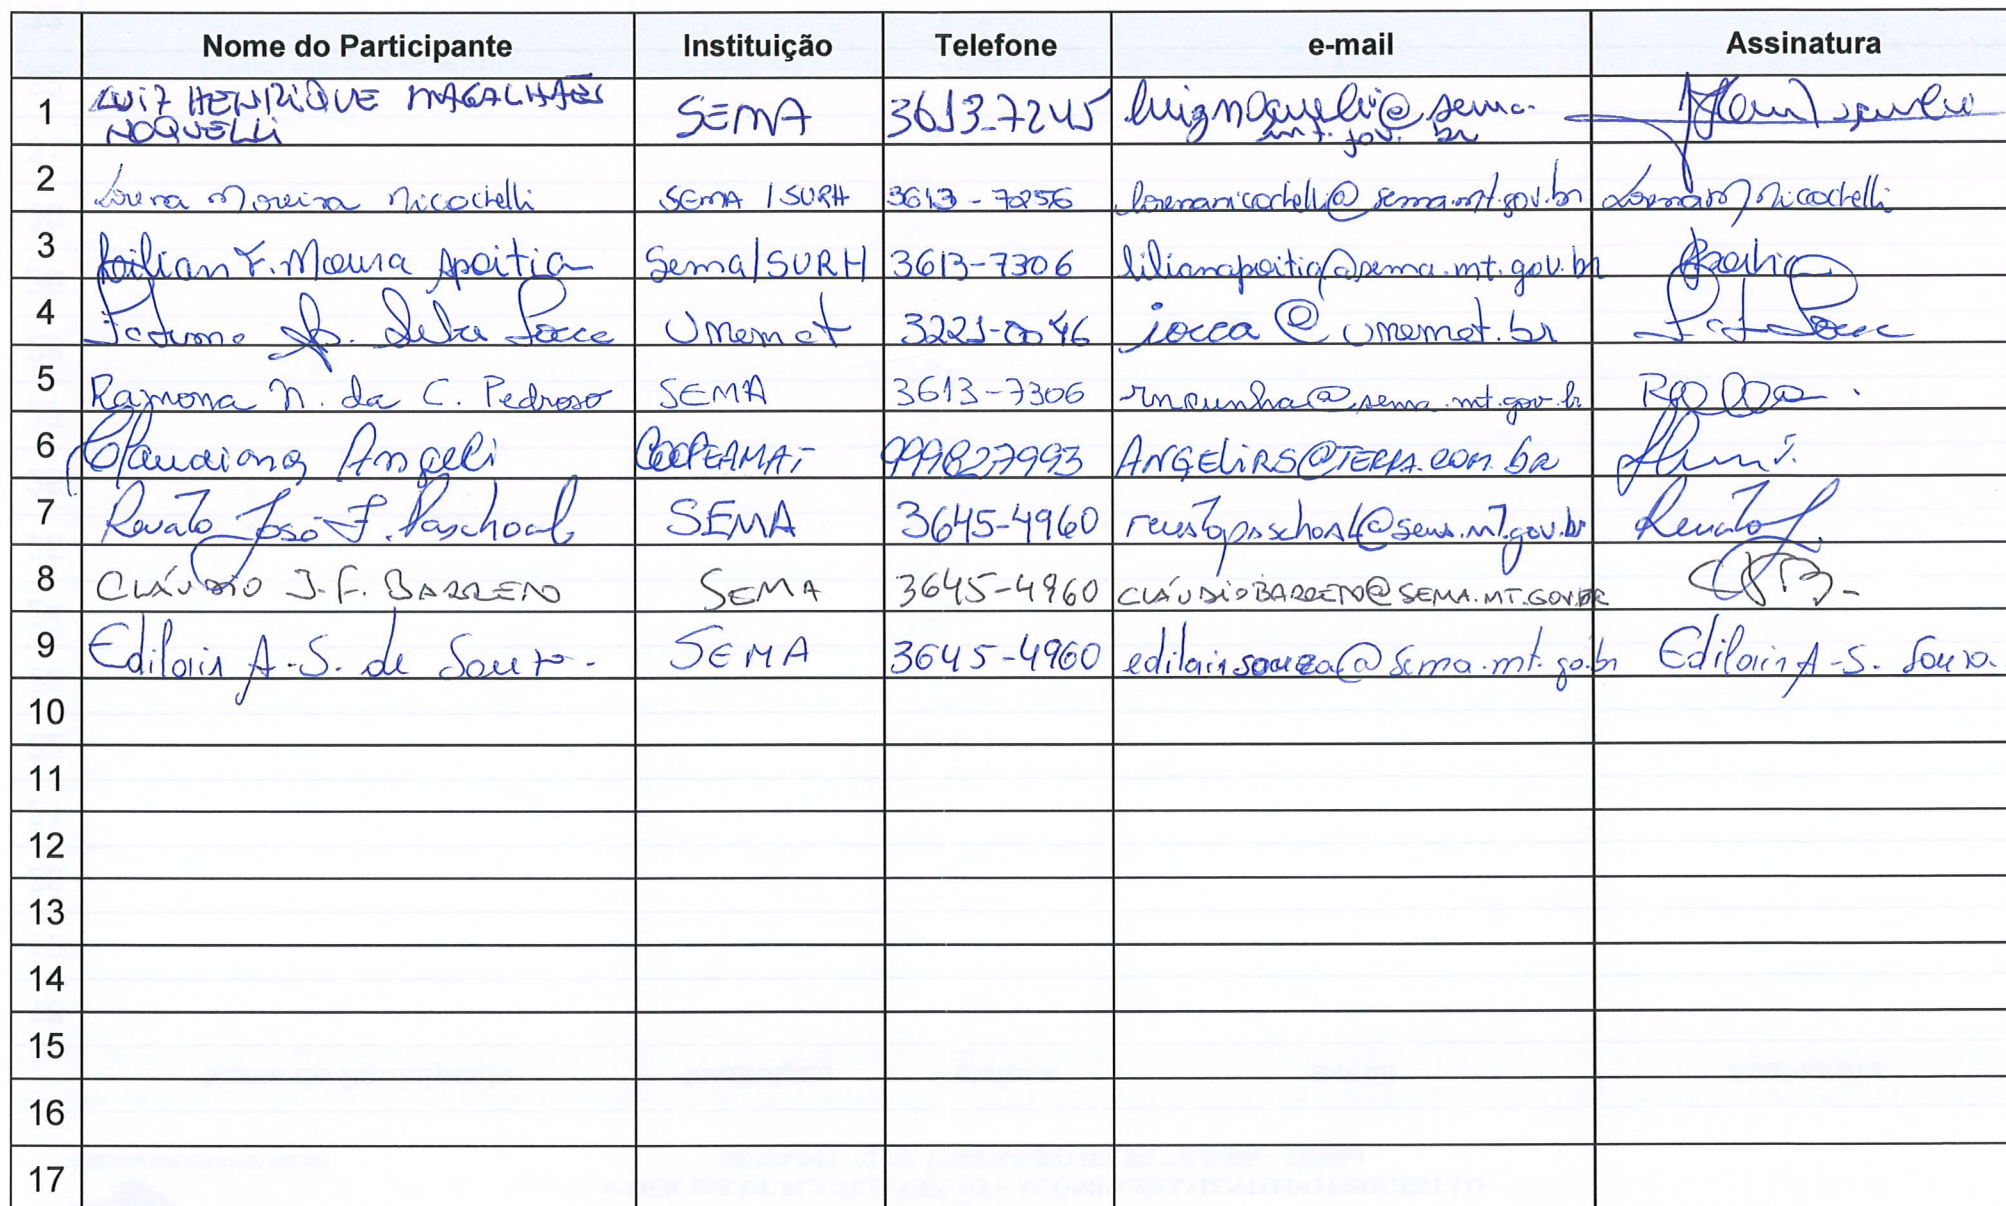 Nome do Participante Instituição Telefone e-mail Assinatura
1 LUIZ HENRIQUE MAGALHÃES NOQUELLI SEMA 3613-7245 luiznoquelli@sema.mt.gov.br
2 Lorena Moreira Nicochelli SEMA / SURH 3613-7256 lorenanicochelli@sema.mt.gov.br Lorena M Nicochelli
3 Lilian F. Moura Apoitia Sema/SURH 3613-7306 lilianapoitia@sema.mt.gov.br Apoitia
4 Unemat 3221-0046 iocca@unemat.br
5 Ramona N. da C. Pedroso SEMA 3613-7306 rncunha@sema.mt.gov.br
6 Claudiana Angeli COOPERMAT 999827993 ANGELIRS@TERRA.COM.BR
7 Renato José F. Paschoal SEMA 3645-4960 renatopaschoal@sema.mt.gov.br Renato
8 CLÁUDIO J.F. BARRETO SEMA 3645-4960 CLÁUDIOBARRETO@SEMA.MT.GOV.BR
9 Edilain A.S. de Souza. SEMA 3645-4960 edilainsouza@sema.mt.go.br Edilain A-S. Souza
10
11
12
13
14
15
16
17